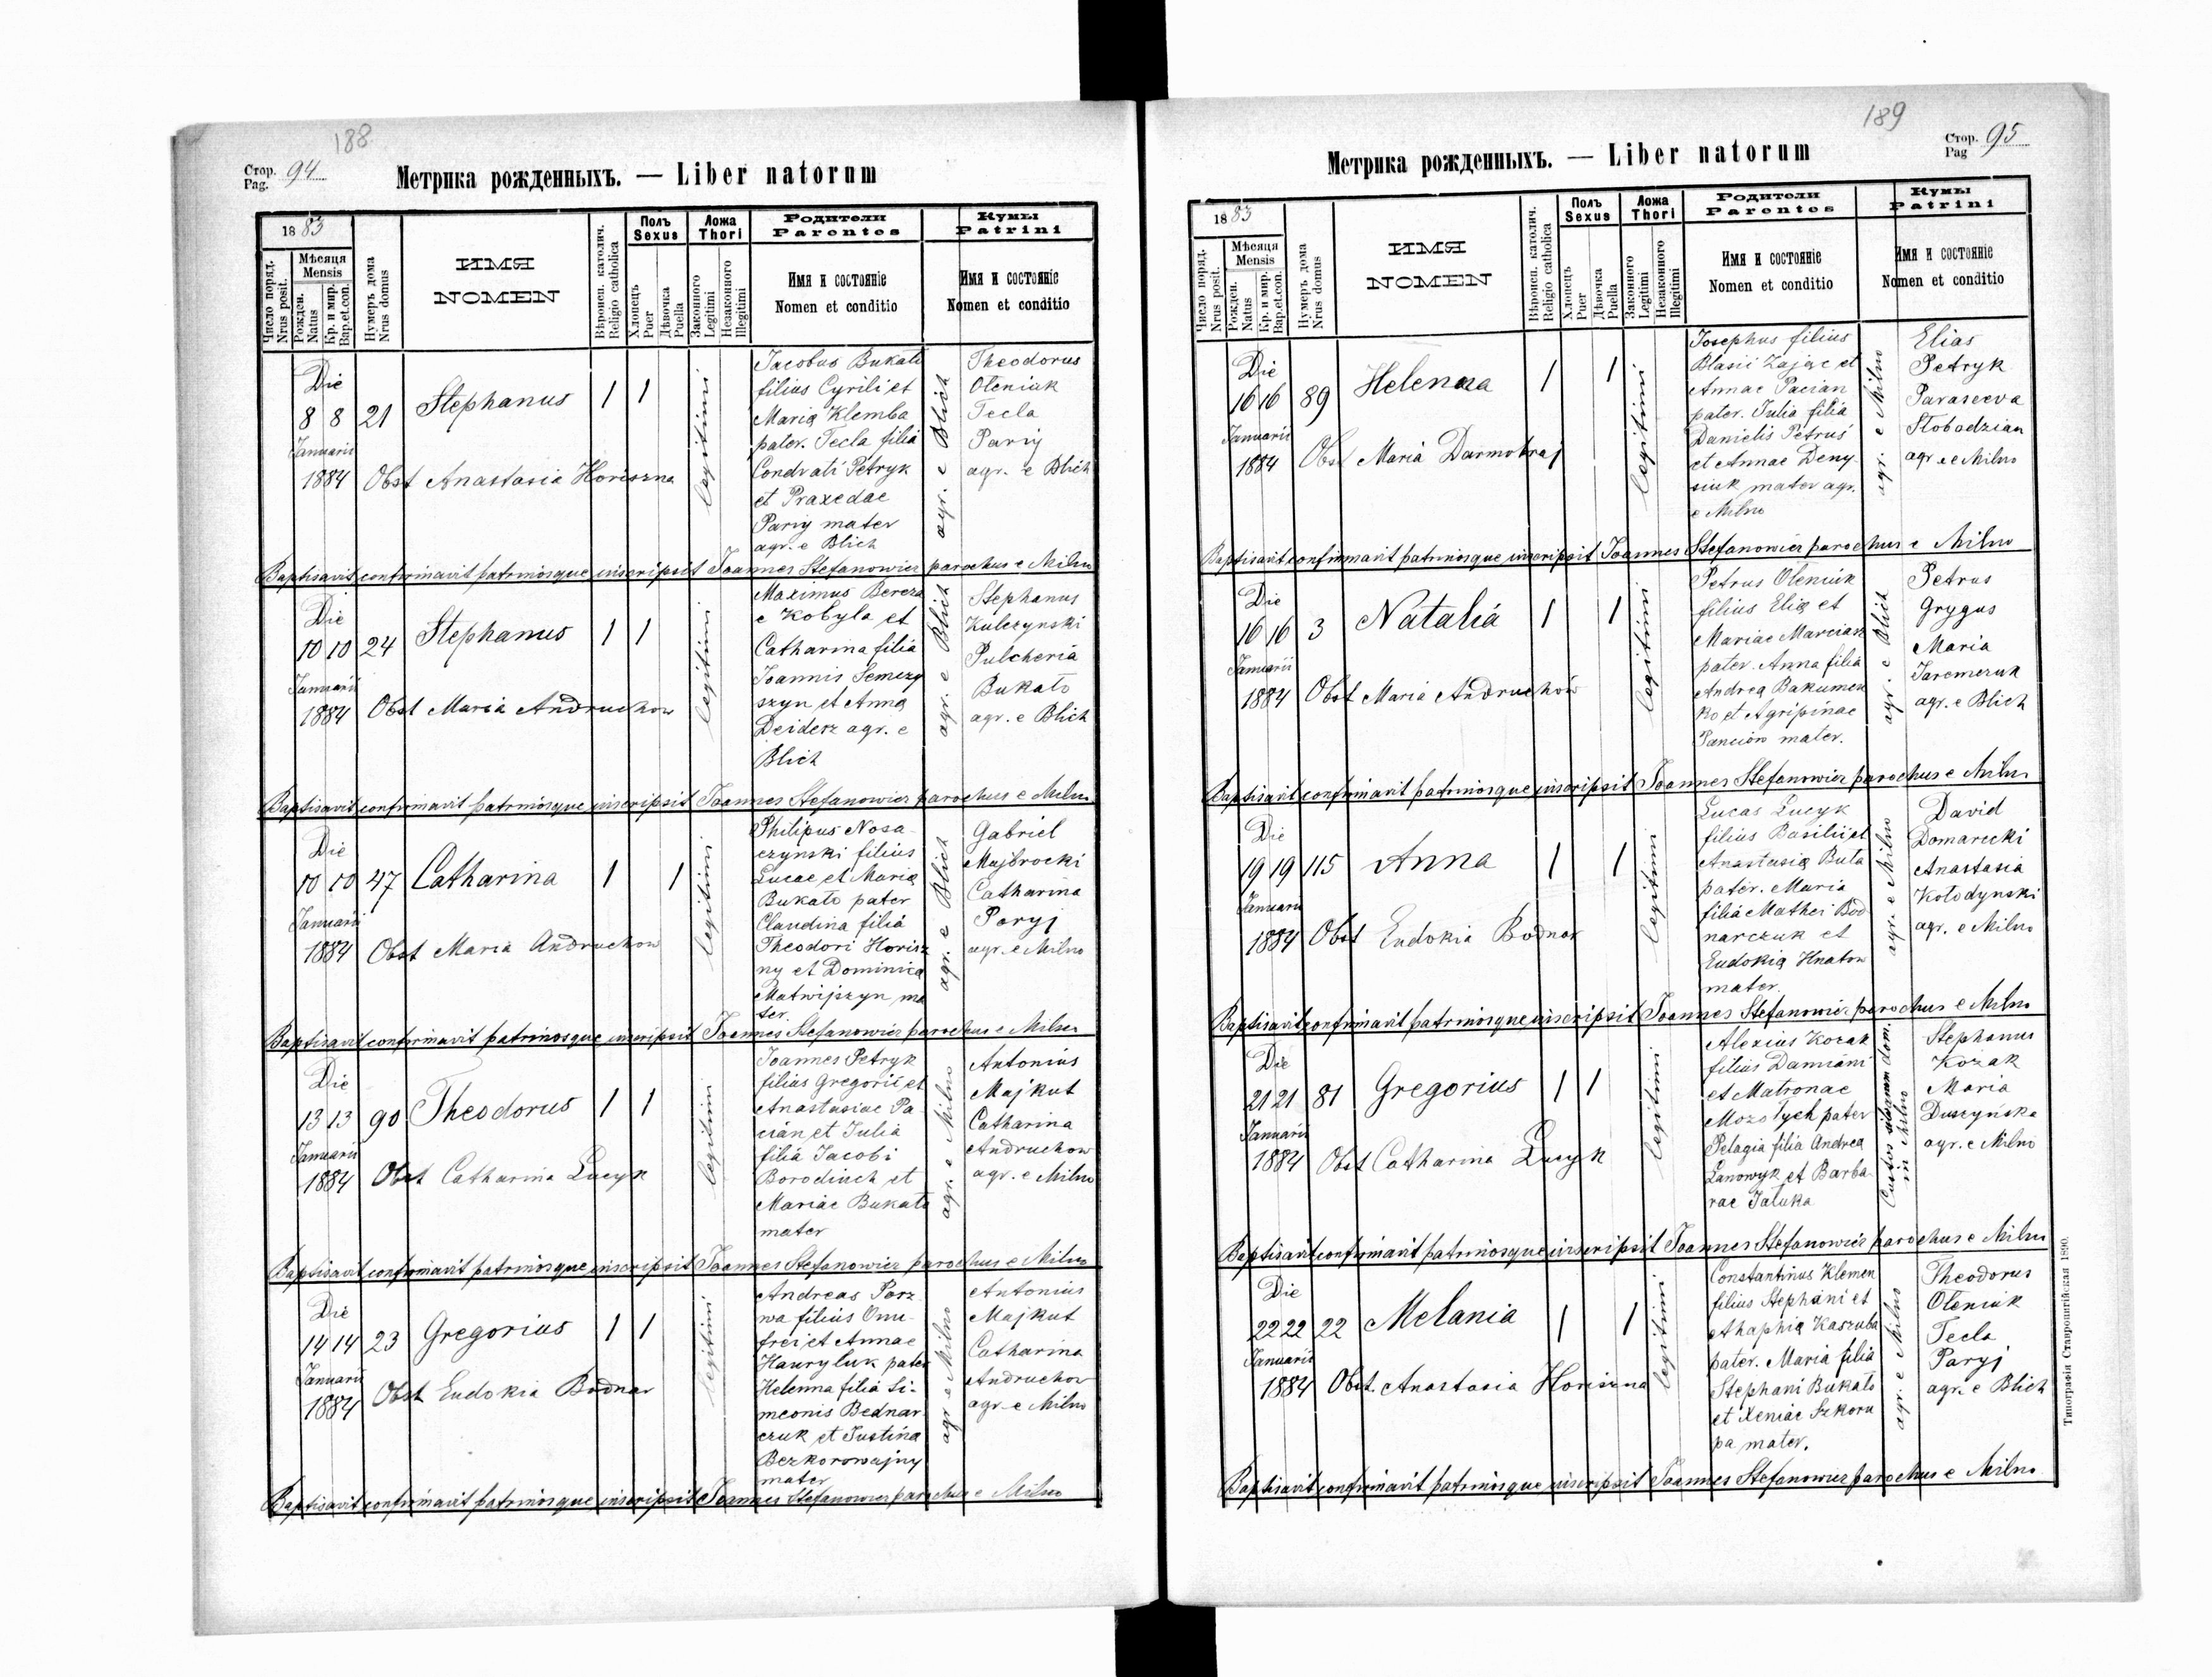 188
Стор.
Pag. 94
Метрика рожденныхъ. — Liber natorum
1883
Число поряд.
Nrus posit.
Мѣсяца
Mensis
Рожден.
Natus
Кр. и мир.
Bap.et.con.
Нумеръ дома
Nrus domus
ИМЯ
NOMEN
Вѣроисп. католич.
Religio catholica
Полъ
Sexus
Хлопецъ
Puer
Дѣвочка
Puella
Ложа
Thori
Законного
Legitimi
Незаконного
Illegitimi
Родители
Parentes
Имя и состояніе
Nomen et conditio
Кумы
Patrini
Имя и состояніе
Nomen et conditio
Die
8 8 21 Stephanus 1 1
Januarii
1884 Obst Anastasia Horiszna
legitimi
Jacobus Bukato
filius Cyrili et
Maria Klemba
pater. Tecla filia
Condrati Petryk
et Praxedae
Pariy mater
agr. e Blich
agr. e Blich
Theodorus
Oleniuk
Tecla
Pariy
agr. e Blich
Baptisavit confirmavit patrinosque inscripsit Joannes Stefanowicz parochus e Milno
Die
10 10 24 Stephanus 1 1
Januarii
1884 Obst Maria Andruchow
legitimi
Maximus Bereza
e Kobyla et
Catharina filia
Joannis Semczy
szyn et Anna
Deidesz agr. e
Blich
agr. e Blich
Stephanus
Kulczynski
Pulcheria
Bukato
agr. e Blich
Baptisavit confirmavit patrinosque inscripsit Joannes Stefanowicz parochus e Milno
Die
10 10 47 Catharina 1 1
Januarii
1884 Obst Maria Andruchow
legitimi
Philipus Nosa-
czynski filius
Lucae et Maria
Bukato pater
Claudina filia
Theodori Horisz
ny et Dominica
Matwijszyn ma
ter.
agr. e Blich
Gabriel
Majbrocki
Catharina
Poryj
agr. e Milno
Baptisavit confirmavit patrinosque inscripsit Joannes Stefanowicz parochus e Milno
Die
13 13 90 Theodorus 1 1
Januarii
1884 Obst Catharina Lucyk
legitimi
Joannes Petryk
filius Gregorii et
Anastasiae Pa-
cian et Julia
filia Jacobi
Borodiuch et
Mariae Bukato
mater
agr. e Milno
Antonius
Majkut
Catharina
Andruchow
agr. e Milno
Baptisavit confirmavit patrinosque inscripsit Joannes Stefanowicz parochus e Milno
Die
14 14 23 Gregorius 1 1
Januarii
1884 Obst Eudokia Bodnar
legitimi
Andreas Parz
wa filius Onu-
frei et Annae
Hauryluk pater
Helenna filia Si-
meonis Bednar
czuk et Justina
Bezkorowajny
mater
agr e Milno
Antonius
Majkut
Catharina
Andruchow
agr. e Milno
Baptisavit confirmavit patrinosque inscripsit Joannes Stefanowicz parochus e Milno
189
Стор.
Pag 95
Метрика рожденныхъ. — Liber natorum
1883
Число поряд.
Nrus posit.
Мѣсяца
Mensis
Рожден.
Natus
Кр. и мир.
Bap.et.con.
Нумеръ дома
Nrus domus
ИМЯ
NOMEN
Вѣроисп. католич.
Religio catholica
Полъ
Sexus
Хлопецъ
Puer
Дѣвочка
Puella
Ложа
Thori
Законного
Legitimi
Незаконного
Illegitimi
Родители
Parentes
Имя и состояніе
Nomen et conditio
Кумы
Patrini
Имя и состояніе
Nomen et conditio
Die
16 16 89 Helenna 1 1
Januarii
1884 Obst Maria Darmohraj
legitimi
Josephus filius
Blasii Zając et
Annae Pacian
pater. Julia filia
Danielis Petrus
et Annae Deny-
siuk mater agr.
e Milno
agr. e Milno
Elias
Petryk
Parasceva
Slobodzian
agr e e Milno
Baptisavit confirmavit patrinosque inscripsit Joannes Stefanowicz parochus e Milno
Die
16 16 3 Natalia 1 1
Januarii
1884 Obst Maria Andruchów
legitimi
Petrus Oleniuk
filius Elia et
Mariae Marciasz
pater. Anna filia
Andrea Bakumen
ko et Agripinae
Panciow mater.
agr. e Blich
Petrus
Grygus
Maria
Jaremczuk
agr. e Blich
Baptisavit confirmavit patrinosque inscripsit Joannes Stefanowicz parochus e Milno
Die
19 19 115 Anna 1 1
Januarii
1884 Obst Eudokia Bodnar
legitimi
Lucas Lucyk
filius Basilii et
Anastasia Buta
pater. Maria
filia Mathei Bod
narczuk et
Eudokia Hnatow
mater.
agr. e Milno
David
Domarecki
Anastasia
Kołodynski
agr. e Milno
Baptisavit confirmavit patrinosque inscripsit Joannes Stefanowicz parochus e Milno
Die
21 21 81 Gregorius 1 1
Januarii
1884 Obst Catharina Lucyk
legitimi
Alexius Kozak
filius Damiani
et Matronae
pater
Pelagia filia Andrea
Lanowyk et Barba-
rae Jaluka
Custos silvarum dom.
in Milno
Stephanus
Kozak
Maria
Duszyńska
agr. e Milno
Baptisavit confirmavit patrinosque inscripsit Joannes Stefanowicz parochus e Milno
Die
22 22 22 Melania 1 1
Januarii
1884 Obst. Anastasia Horiszna
legitimi
Constantinus Klemen
filius Stephani et
Ahaphia Kaszuba
pater. Maria filia
Stephani Bukato
et Xeniae Szkoru
pa mater.
agr. e Milno
Theodorus
Oleniuk
Tecla
Paryj
agr. e Blich
Baptisavit confirmavit patrinosque inscripsit Joannes Stefanowicz parochus e Milno
Типографія Ставропигійская 1890.